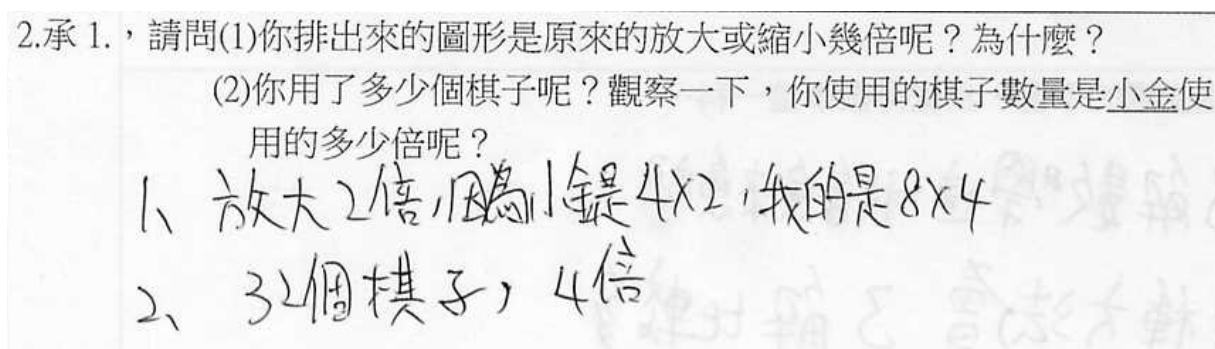 2.承 1.，請問(1)你排出來的圖形是原來的放大或縮小幾倍呢？為什麼？
(2)你用了多少個棋子呢？觀察一下，你使用的棋子數量是小金使
用的多少倍呢？
1、放大2倍，因為小金是4×2，我的是8×4
2、32個棋子，4倍